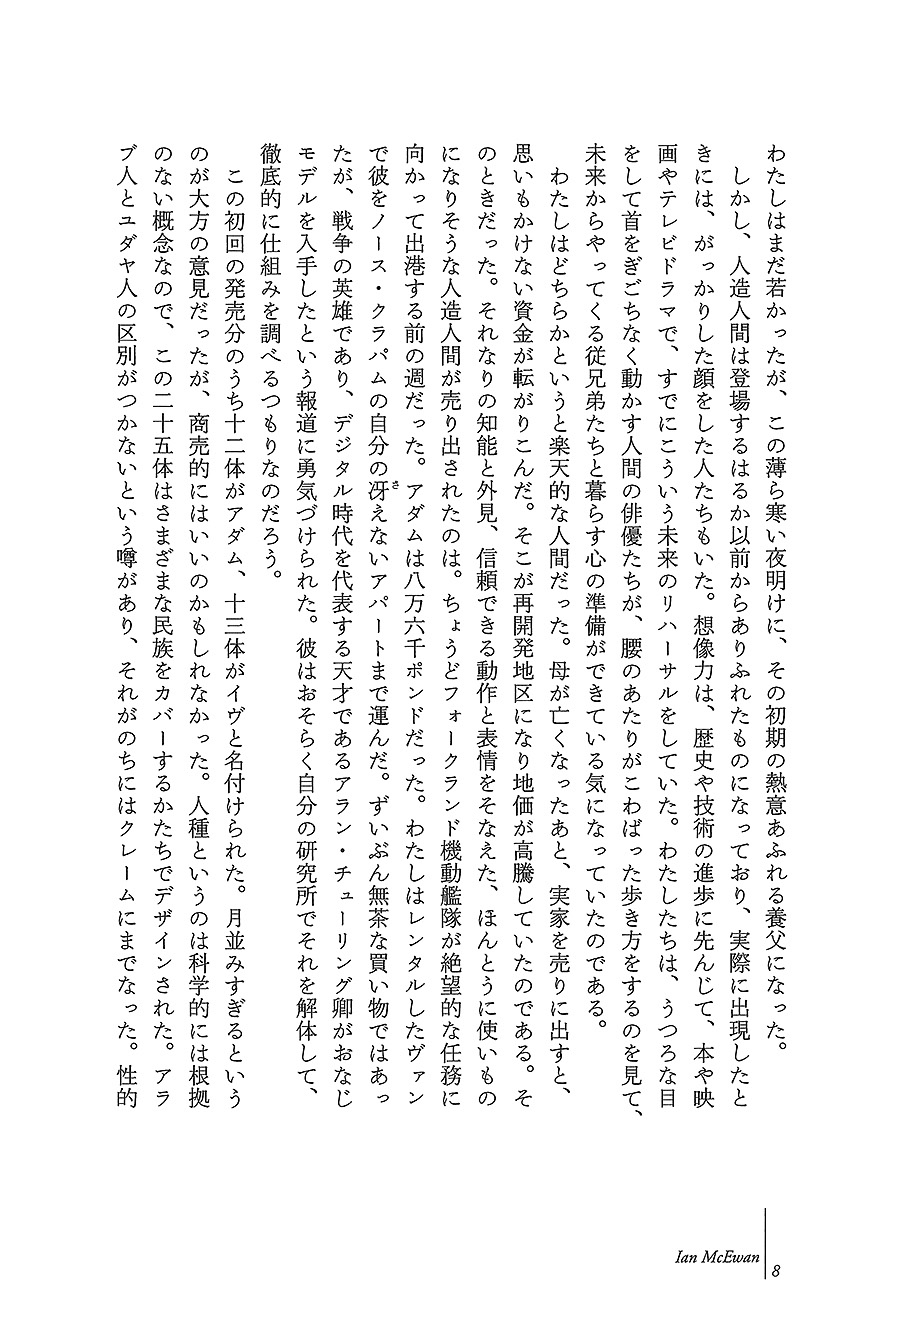 わたしはまだ若かったが、この薄ら寒い夜明けに、その初期の熱意あふれる養父になった。
しかし、人造人間は登場するはるか以前からありふれたものになっており、実際に出現したと
きには、がっかりした顔をした人たちもいた。想像力は、歴史や技術の進歩に先んじて、本や映
画やテレビドラマで、すでにこういう未来のリハーサルをしていた。わたしたちは、うつろな目
をして首をぎごちなく動かす人間の俳優たちが、腰のあたりがこわばった歩き方をするのを見て、
未来からやってくる従兄弟たちと暮らす心の準備ができている気になっていたのである。
わたしはどちらかというと楽天的な人間だった。母が亡くなったあと、実家を売りに出すと、
思いもかけない資金が転がりこんだ。そこが再開発地区になり地価が高騰していたのである。そ
のときだった。それなりの知能と外見、信頼できる動作と表情をそなえた、ほんとうに使いもの
になりそうな人造人間が売り出されたのは。ちょうどフォークランド機動艦隊が絶望的な任務に
向かって出港する前の週だった。アダムは八万六千ポンドだった。わたしはレンタルしたヴァン
で彼をノース・クラパムの自分の冴えないアパートまで運んだ。ずいぶん無茶な買い物ではあっ
たが、戦争の英雄であり、デジタル時代を代表する天才であるアラン・チューリング卿がおなじ
モデルを入手したという報道に勇気づけられた。彼はおそらく自分の研究所でそれを解体して、
徹底的に仕組みを調べるつもりなのだろう。
この初回の発売分のうち十二体がアダム、十三体がイヴと名付けられた。月並みすぎるという
のが大方の意見だったが、商売的にはいいのかもしれなかった。人種というのは科学的には根拠
のない概念なので、この二十五体はさまざまな民族をカバーするかたちでデザインされた。アラ
ブ人とユダヤ人の区別がつかないという噂があり、それがのちにはクレームにまでなった。性的
Ian McEwan
8